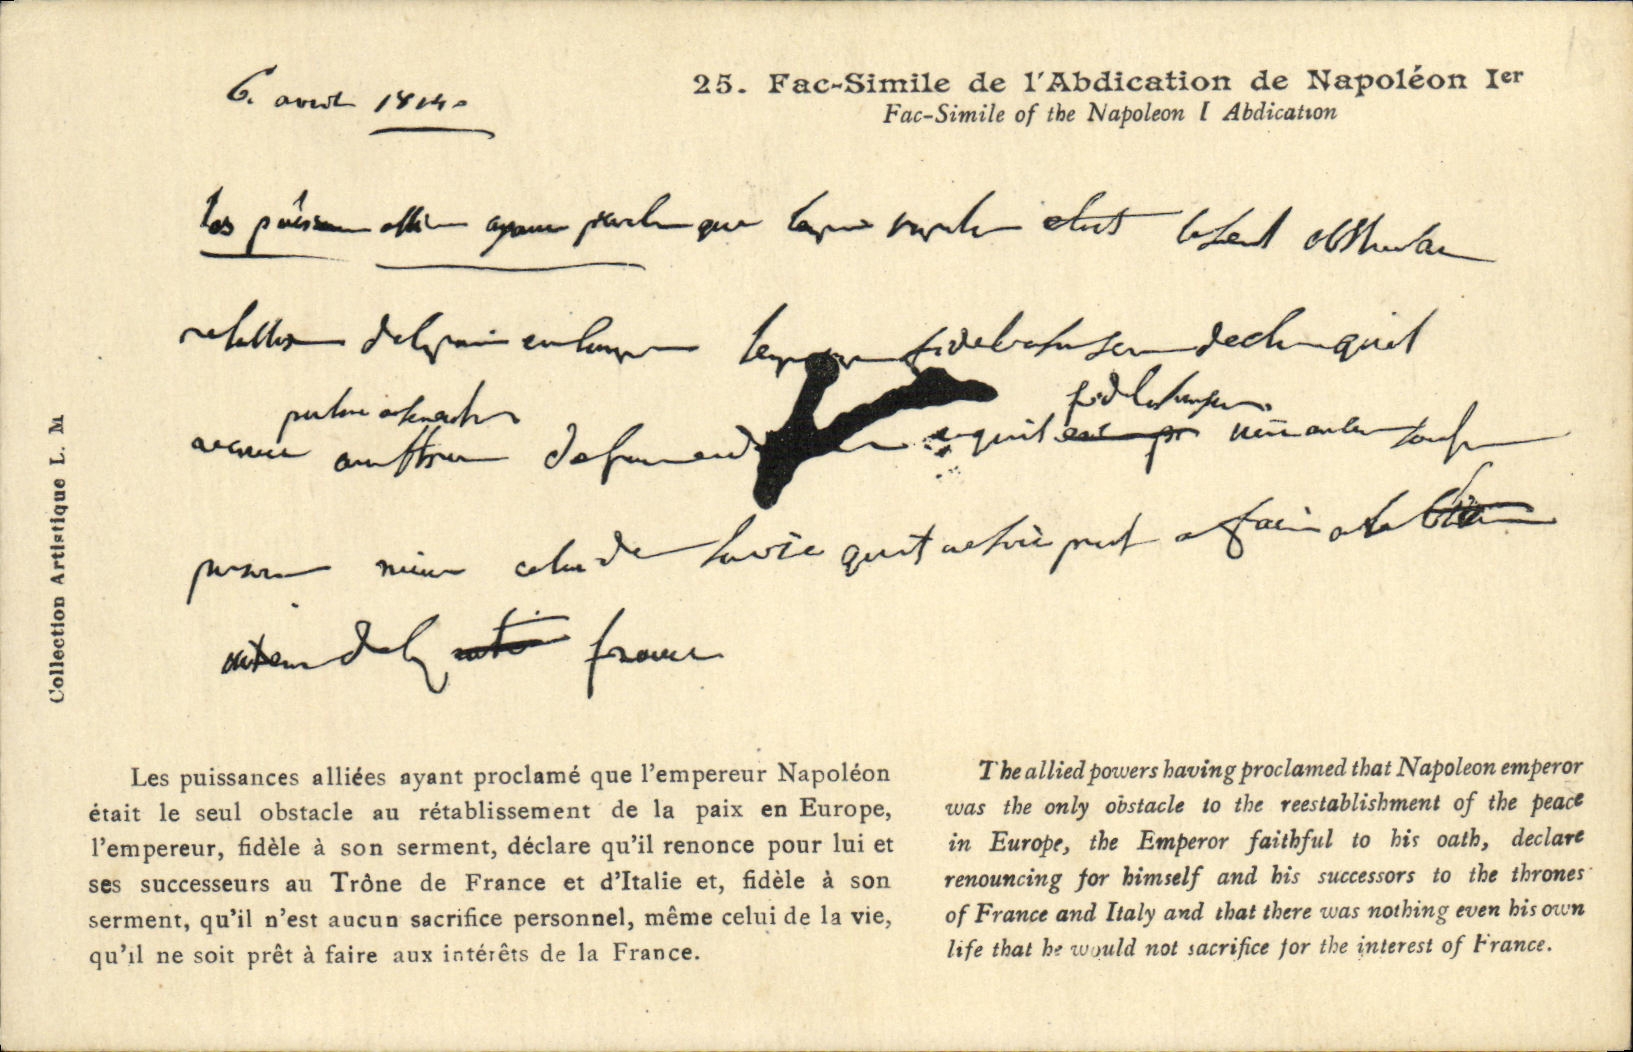 6. avril 1814.
25. Fac-Simile de l'Abdication de Napoléon Ier
Fac-Simile of the Napoleon I Abdication
les puissances alliées ayant proclamé que l'empereur était le seul obstacle
l'empereur fidèle à son serment déclare qu'il
personnel même celui de la vie qu'il ne soit prêt à faire
de la france
Collection Artistique L. M
Les puissances alliées ayant proclamé que l'empereur Napoléon
était le seul obstacle au rétablissement de la paix en Europe,
l'empereur, fidèle à son serment, déclare qu'il renonce pour lui et
ses successeurs au Trône de France et d'Italie et, fidèle à son
serment, qu'il n'est aucun sacrifice personnel, même celui de la vie,
qu'il ne soit prêt à faire aux intérêts de la France.
The allied powers having proclamed that Napoleon emperor
was the only obstacle to the reestablishment of the peace
in Europe, the Emperor faithful to his oath, declare
renouncing for himself and his successors to the thrones
of France and Italy and that there was nothing even his own
life that he would not sacrifice for the interest of France.